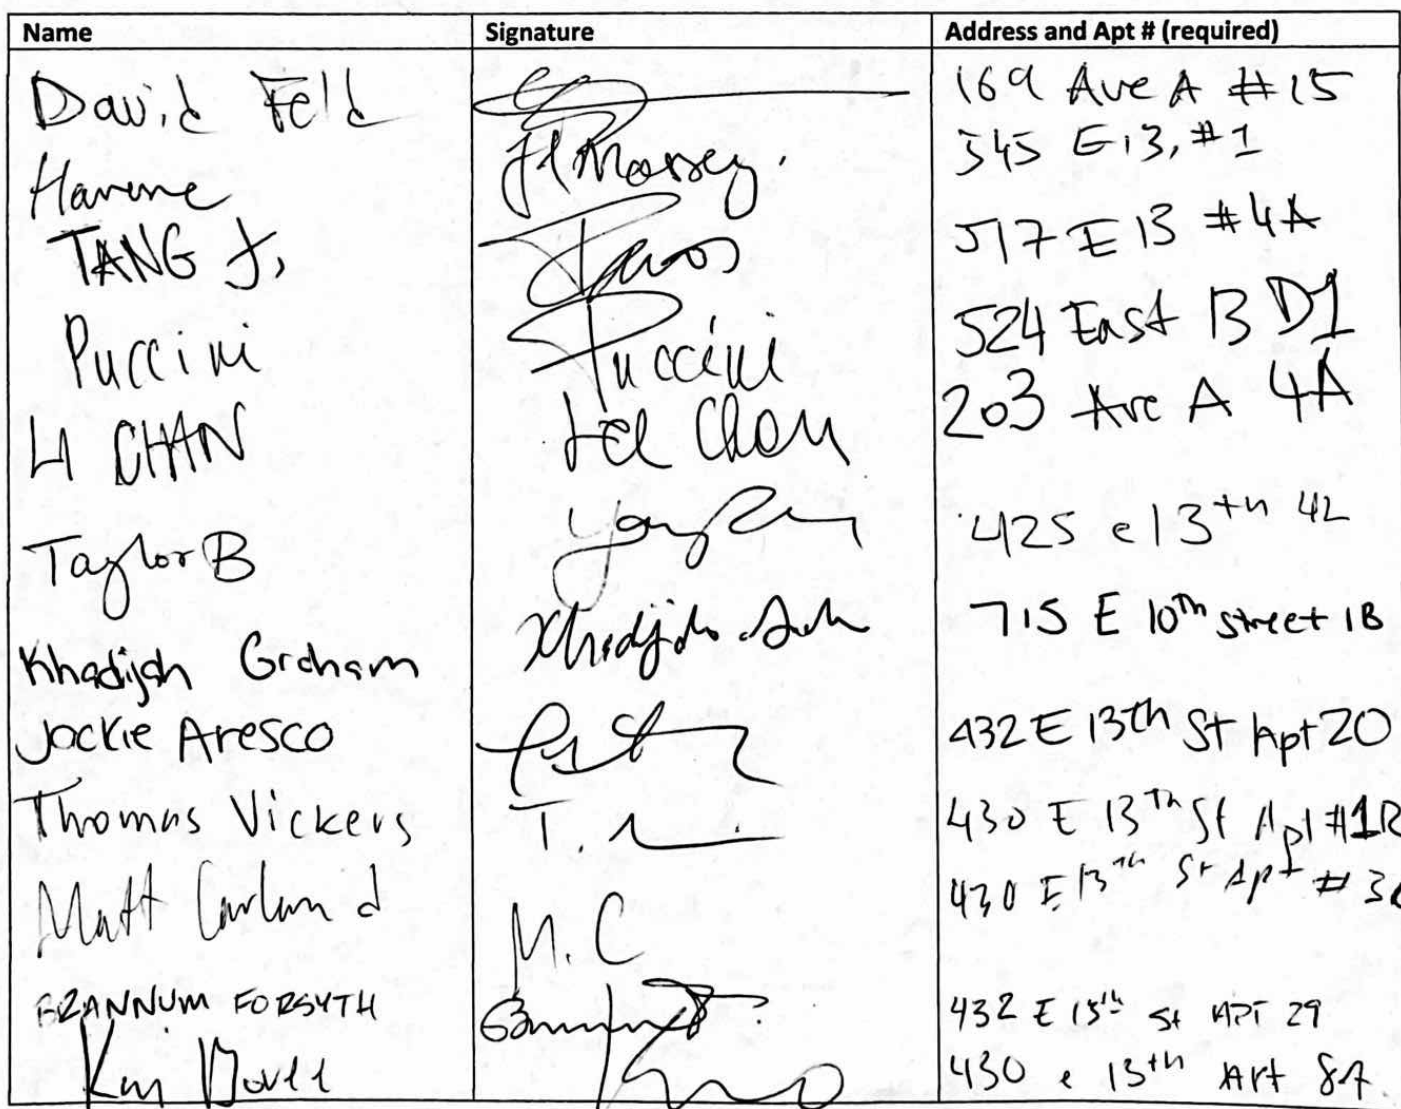 Name Signature Address and Apt # (required)
David Feld 169 Ave A #15
545 E 13, #1
TANG J, 517 E 13 #4A
Puccini Puccini 524 East 13 D1
LI CHAN Lee Chan 203 Ave A 4A
Taylor B 425 e 13th 4L
Khadijah Graham Khadijah 715 E 10th street 1B
Jackie Aresco 432 E 13th St Apt 20
Thomas Vickers T. 430 E 13th St Apt #1R
Matt M. C 430 E 13th St Apt #
BRANNUM FORSYTH 432 E 13th St APT 29
Kim 430 e 13th